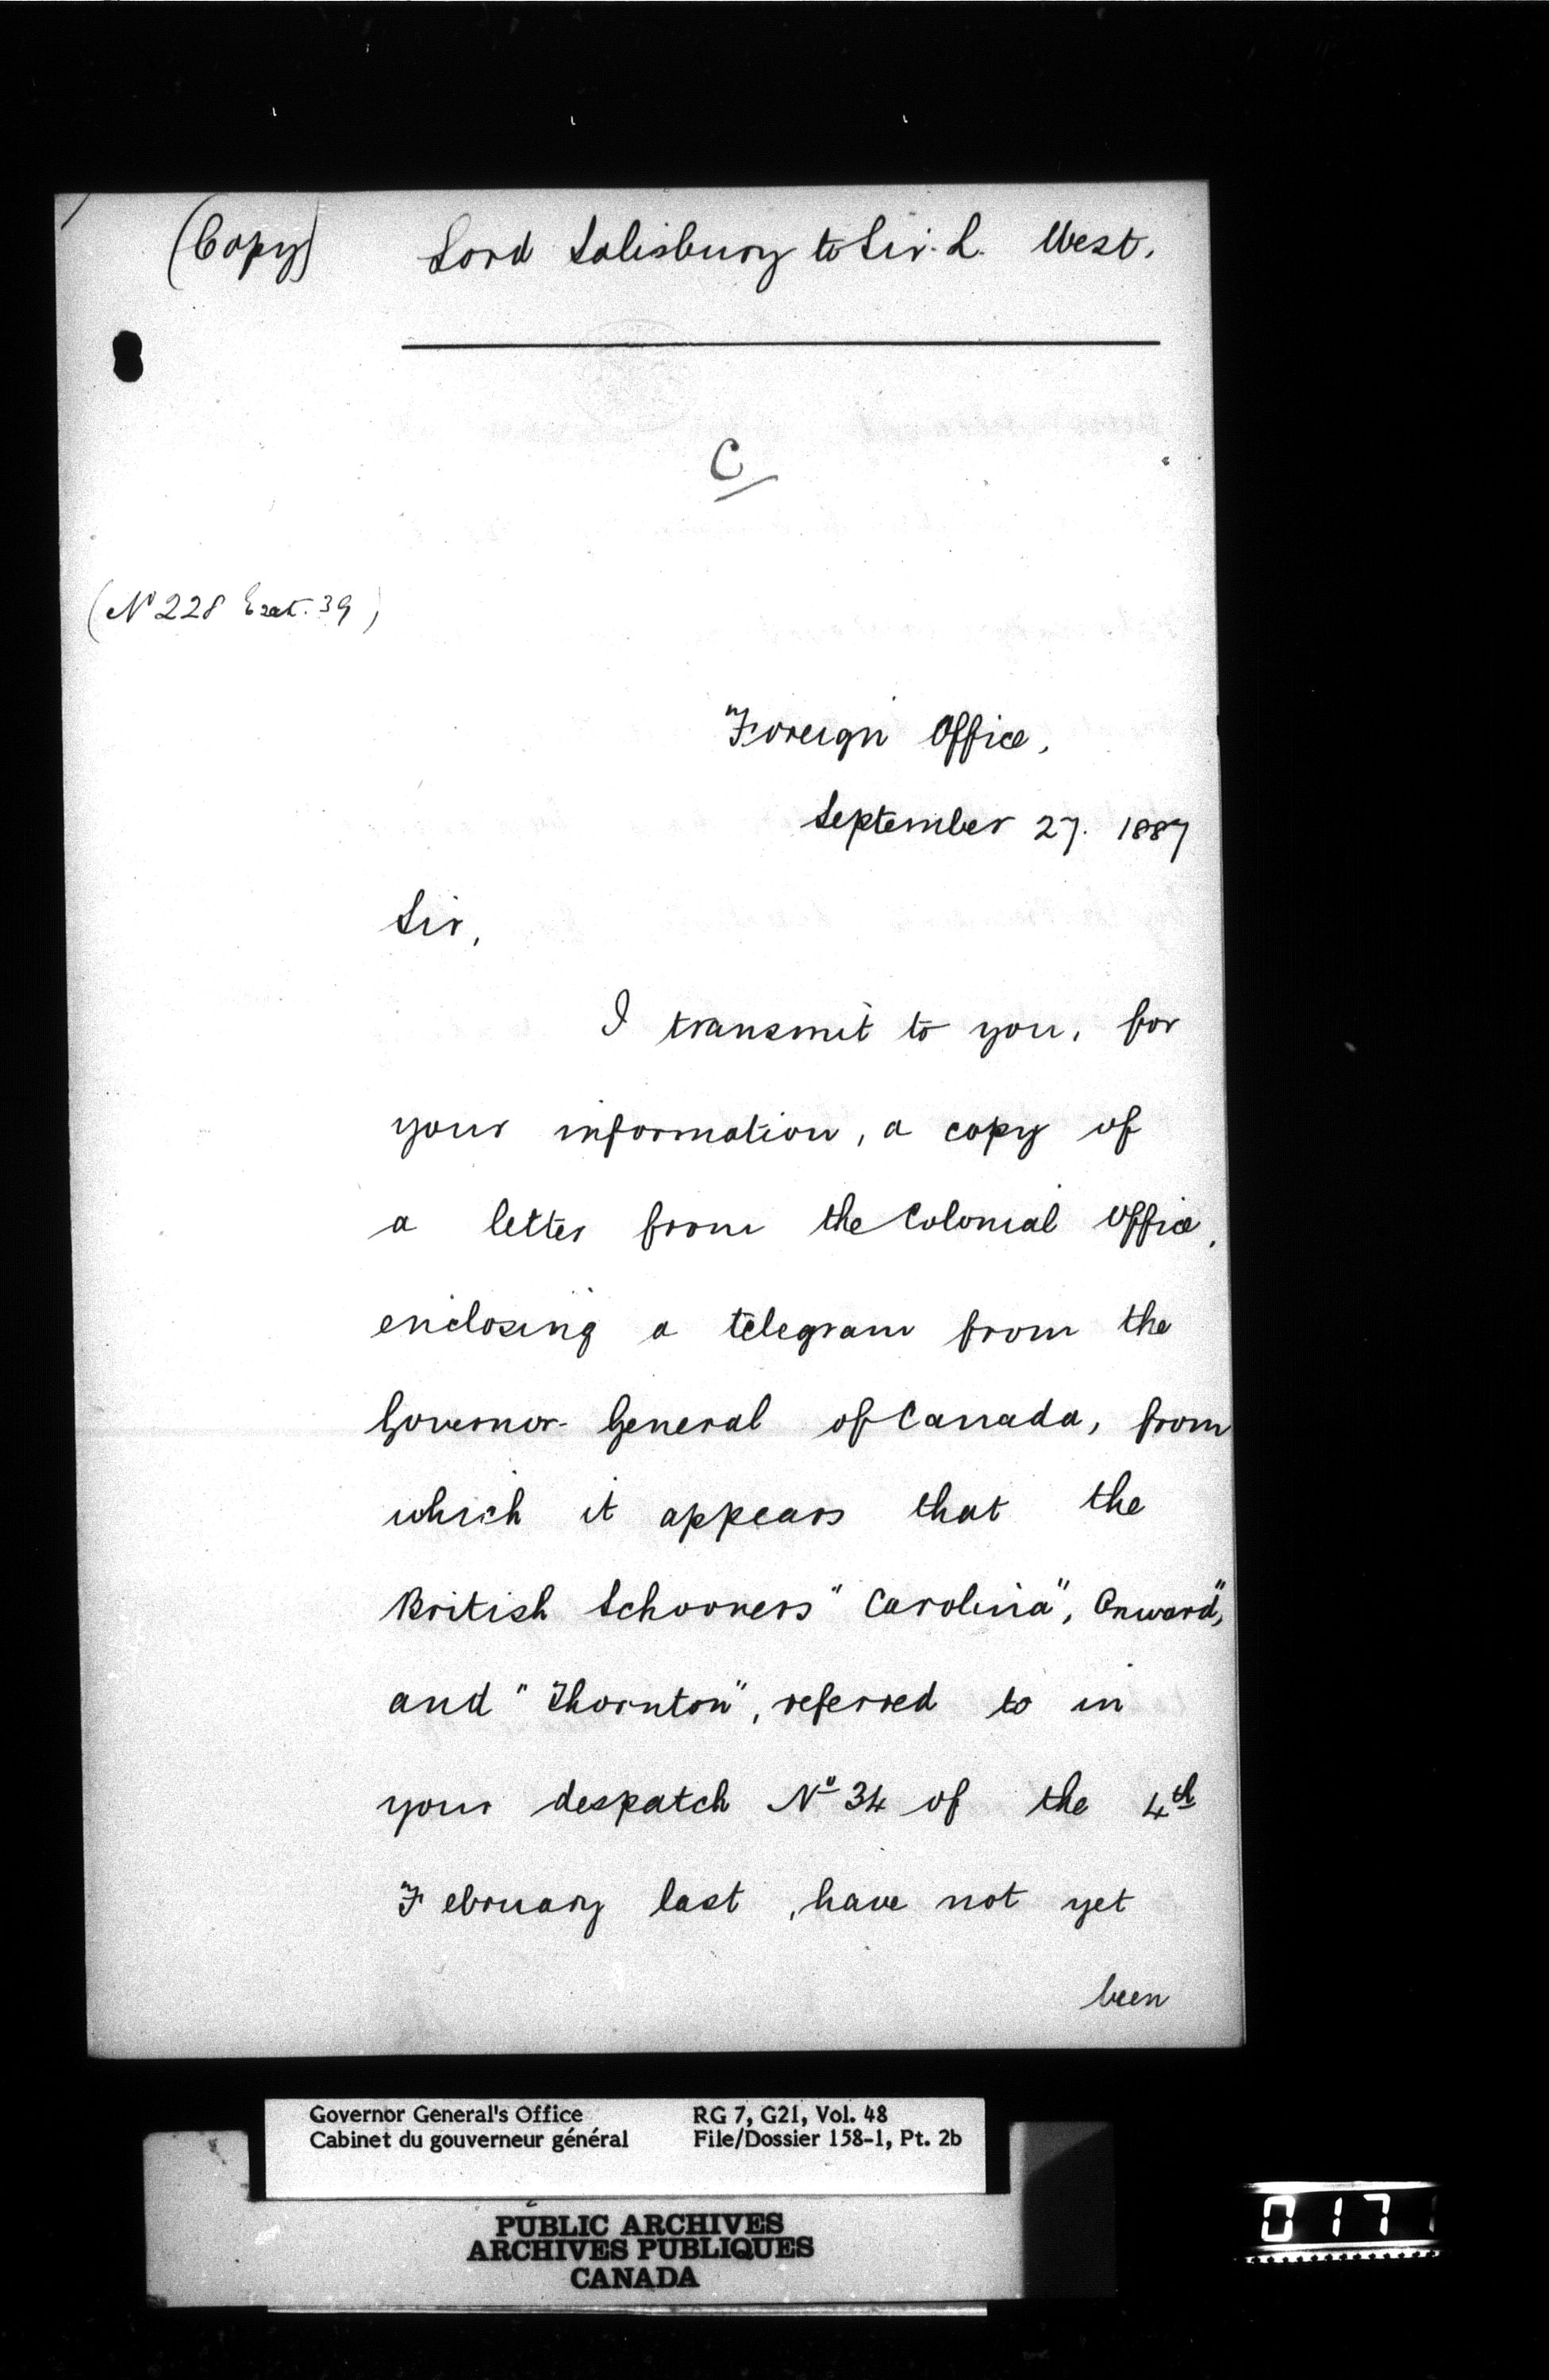 (Copy) Lord Salisbury to Sir. L. West.
C
(No 228 Ext. 39)
Foreign Office,
September 27. 1887
Sir,
I transmit to you, for
your information, a copy of
a letter from the Colonial Office,
enclosing a telegram from the
Governor-General of Canada, from
which it appears that the
British Schooners "Carolina", Onward",
and "Thornton", referred to in
your despatch No 34 of the 4th
February last, have not yet
been
Governor General's Office RG 7, G21, Vol. 48
Cabinet du gouverneur général File/Dossier 158-1, Pt. 2b
PUBLIC ARCHIVES
ARCHIVES PUBLIQUES
CANADA
0171